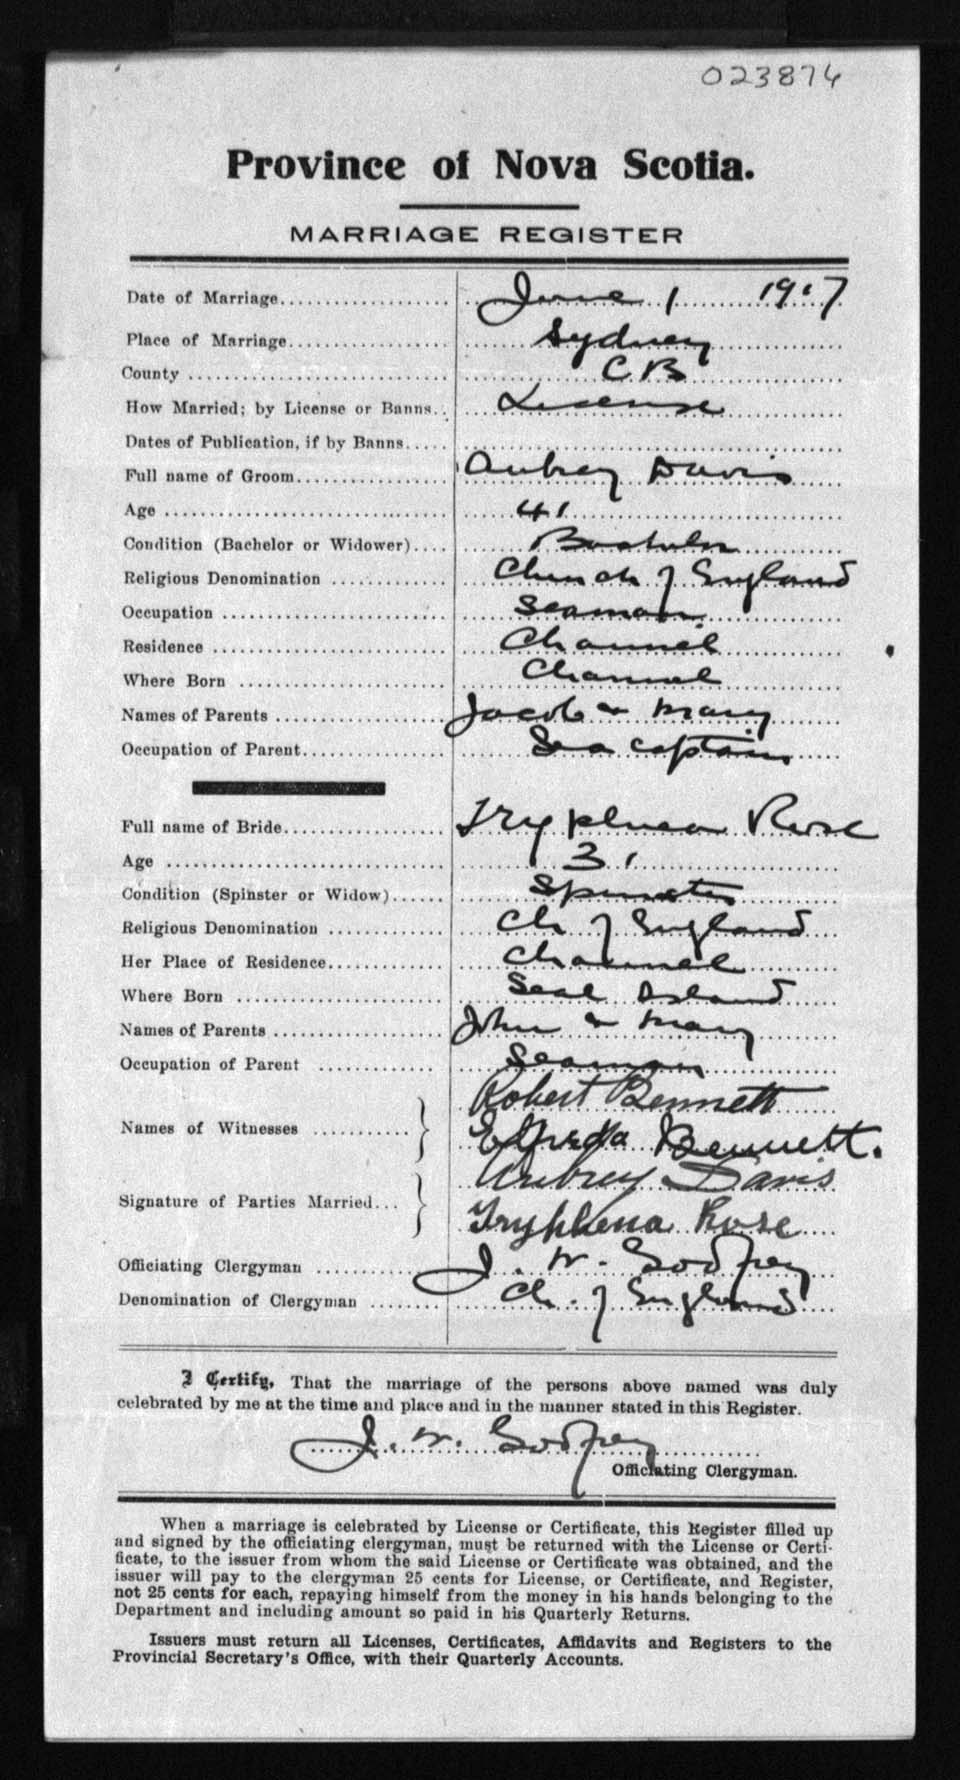 023874
Province of Nova Scotia.
MARRIAGE REGISTER
Date of Marriage.................... June 1 1917
Place of Marriage.................. Sydney
County .............................. C B
How Married; by License or Banns.. License
Dates of Publication, if by Banns.....
Full name of Groom................. Aubrey Davis
Age ................................ 41
Condition (Bachelor or Widower).... Bachelor
Religious Denomination ............ Church of England
Occupation ........................ Seaman
Residence ......................... Channel
Where Born ....................... Channel
Names of Parents .................. Jacob & Mary
Occupation of Parent............... Sea captain
Full name of Bride.................. Tryphena Rose
Age ................................ 31
Condition (Spinster or Widow)...... Spinster
Religious Denomination ............ Ch of England
Her Place of Residence............. Channel
Where Born ....................... Seal Island
Names of Parents .................. John & Mary
Occupation of Parent ............. Seaman
Robert Bennett
Names of Witnesses ........... Elfreda Bennett.
Aubrey Davis
Signature of Parties Married... Tryphena Rose
Officiating Clergyman ............. J. W. Godfrey
Denomination of Clergyman ........ Ch. of England
I Certify, That the marriage of the persons above named was duly
celebrated by me at the time and place and in the manner stated in this Register.
J. W. Godfrey
Officiating Clergyman.
When a marriage is celebrated by License or Certificate, this Register filled up
and signed by the officiating clergyman, must be returned with the License or Certi-
ficate, to the issuer from whom the said License or Certificate was obtained, and the
issuer will pay to the clergyman 25 cents for License, or Certificate, and Register,
not 25 cents for each, repaying himself from the money in his hands belonging to the
Department and including amount so paid in his Quarterly Returns.
Issuers must return all Licenses, Certificates, Affidavits and Registers to the
Provincial Secretary's Office, with their Quarterly Accounts.